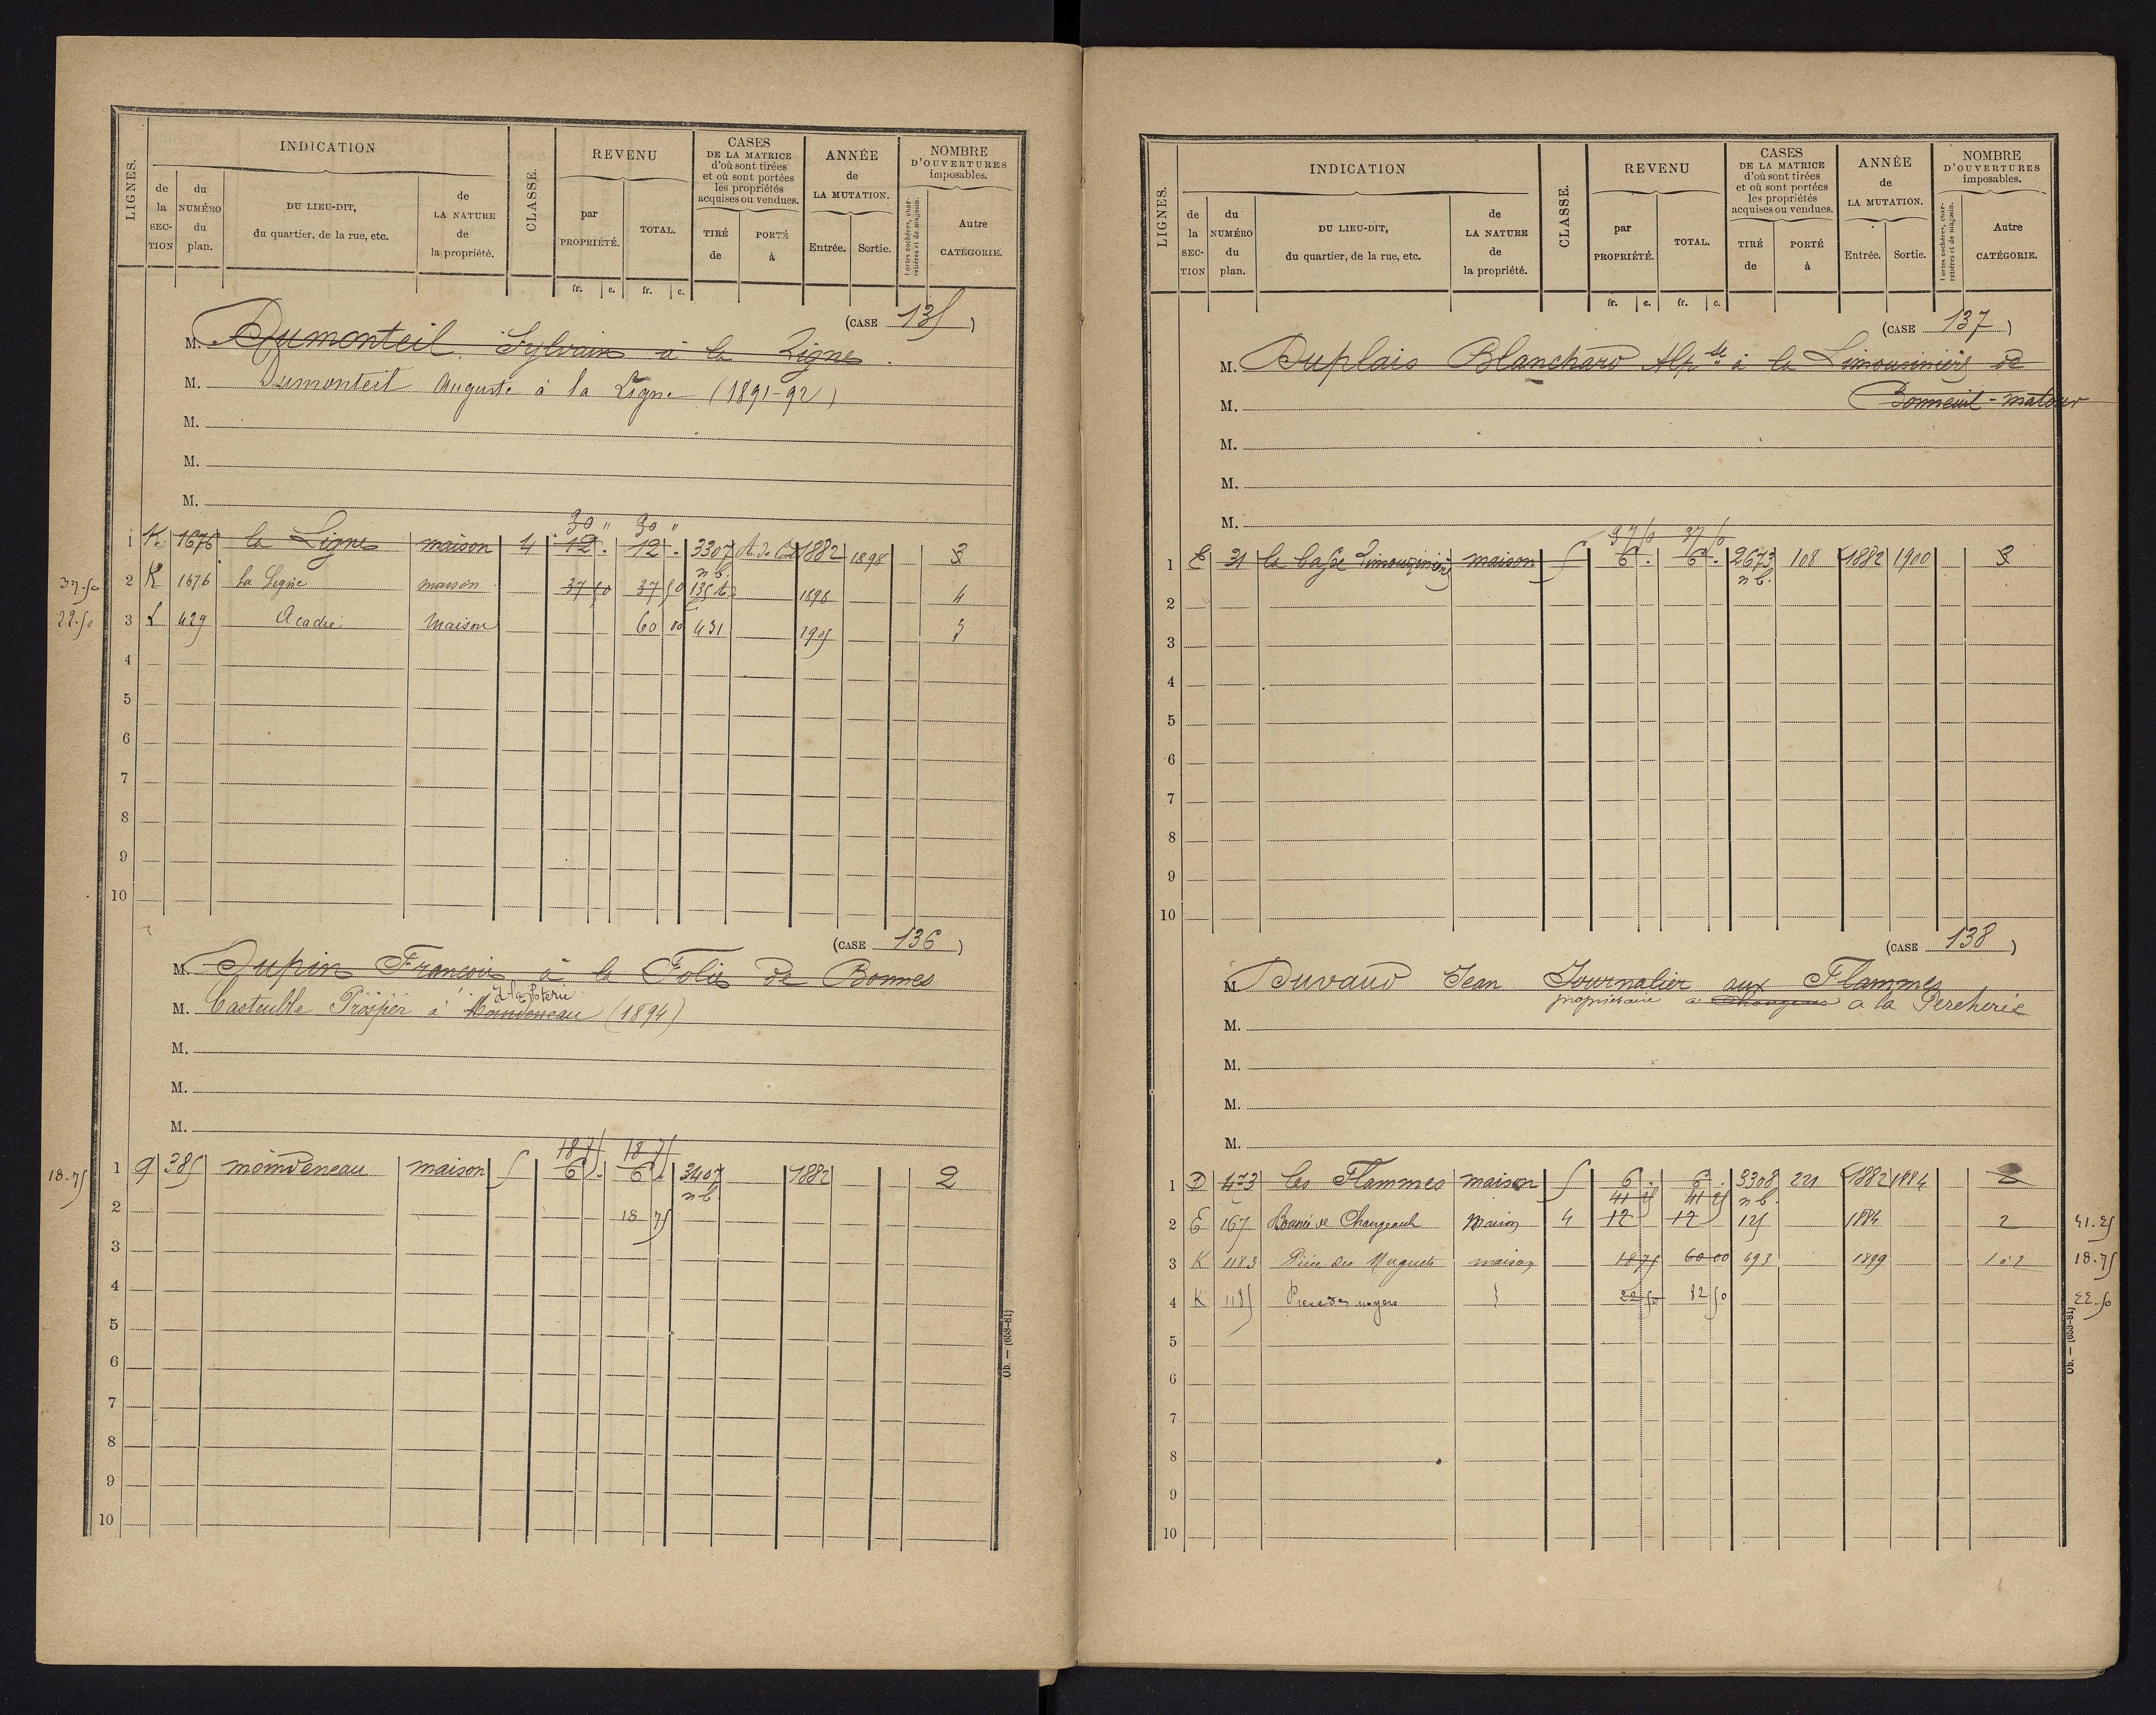 LIGNES.
INDICATION
de la SECTION
du NUMÉRO du plan.
DU LIEU-DIT, du quartier, de la rue, etc.
de LA NATURE de la propriété.
CLASSE.
REVENU
par PROPRIÉTÉ.
TOTAL.
CASES DE LA MATRICE d'où sont tirées et où sont portées les propriétés acquises ou vendues.
TIRÉ de
PORTÉ à
ANNÉE de LA MUTATION.
Entrée. Sortie.
NOMBRE D'OUVERTURES imposables.
Portes cochères, charretières et de magasin.
Autre CATÉGORIE.
fr. c. fr. c.
(CASE 135)
M. Dumonteil Sylvain à la Ligne
M. Dumonteil Auguste à la Ligne (1891-92)
M.
M.
M.
30 " 30 "
1 K 1676 la Ligne maison 4 12 . 12 . 3307 1882 1898 3
n b.
37.50 2 K 1676 La Ligne maison 37 50 37 50 135 1898 4
22.50 3 L 429 Acadie Maison 60 00 431 1905 3
4
5
6
7
8
9
10
(CASE 136)
M. Dupin François à la Folie de Bonnes
à la Poterie
M. Casteuble Prosper à Moindeneau (1894)
M.
M.
M.
18 75 18 75
18.75 1 G 385 moindeneau maison 5 6 . 6 . 3407 1882 2
n b
2 18 75
3
4
5
6
7
8
9
10
Ob. — (653-81)
LIGNES.
INDICATION
de la SECTION
du NUMÉRO du plan.
DU LIEU-DIT, du quartier, de la rue, etc.
de LA NATURE de la propriété.
CLASSE.
REVENU
par PROPRIÉTÉ.
TOTAL.
CASES DE LA MATRICE d'où sont tirées et où sont portées les propriétés acquises ou vendues.
TIRÉ de
PORTÉ à
ANNÉE de LA MUTATION.
Entrée. Sortie.
NOMBRE D'OUVERTURES imposables.
Portes cochères, charretières et de magasin.
Autre CATÉGORIE.
fr. c. fr. c.
(CASE 137)
M. Duplais Blanchard Alp à la Limousinière de
M. Bonneuil-matour
M.
M.
M.
37 50 37 50
1 E 31 la basse Limouzinière maison 5 6 . 6 . 2673 108 1882 1900 3
n b.
2
3
4
5
6
7
8
9
10
(CASE 138)
M. Duvaud Jean Journalier aux Flammes
propriétaire à à la Percherie
M.
M.
M.
M.
1 D 473 les Flammes maison 5 6 . 6 . 3308 221 1882 1884 2
41 25 41 25 n b.
2 E 167 de Chargeault Maison 4 12 12 125 1884 2 41.25
3 K 1183 Pièce des maison 18 75 60 00 493 1899 1 à 2 18.75
4 K 1185 Pièce des noyers 22 50 82 50 22.50
5
6
7
8
9
10
Ob. — (653-81)